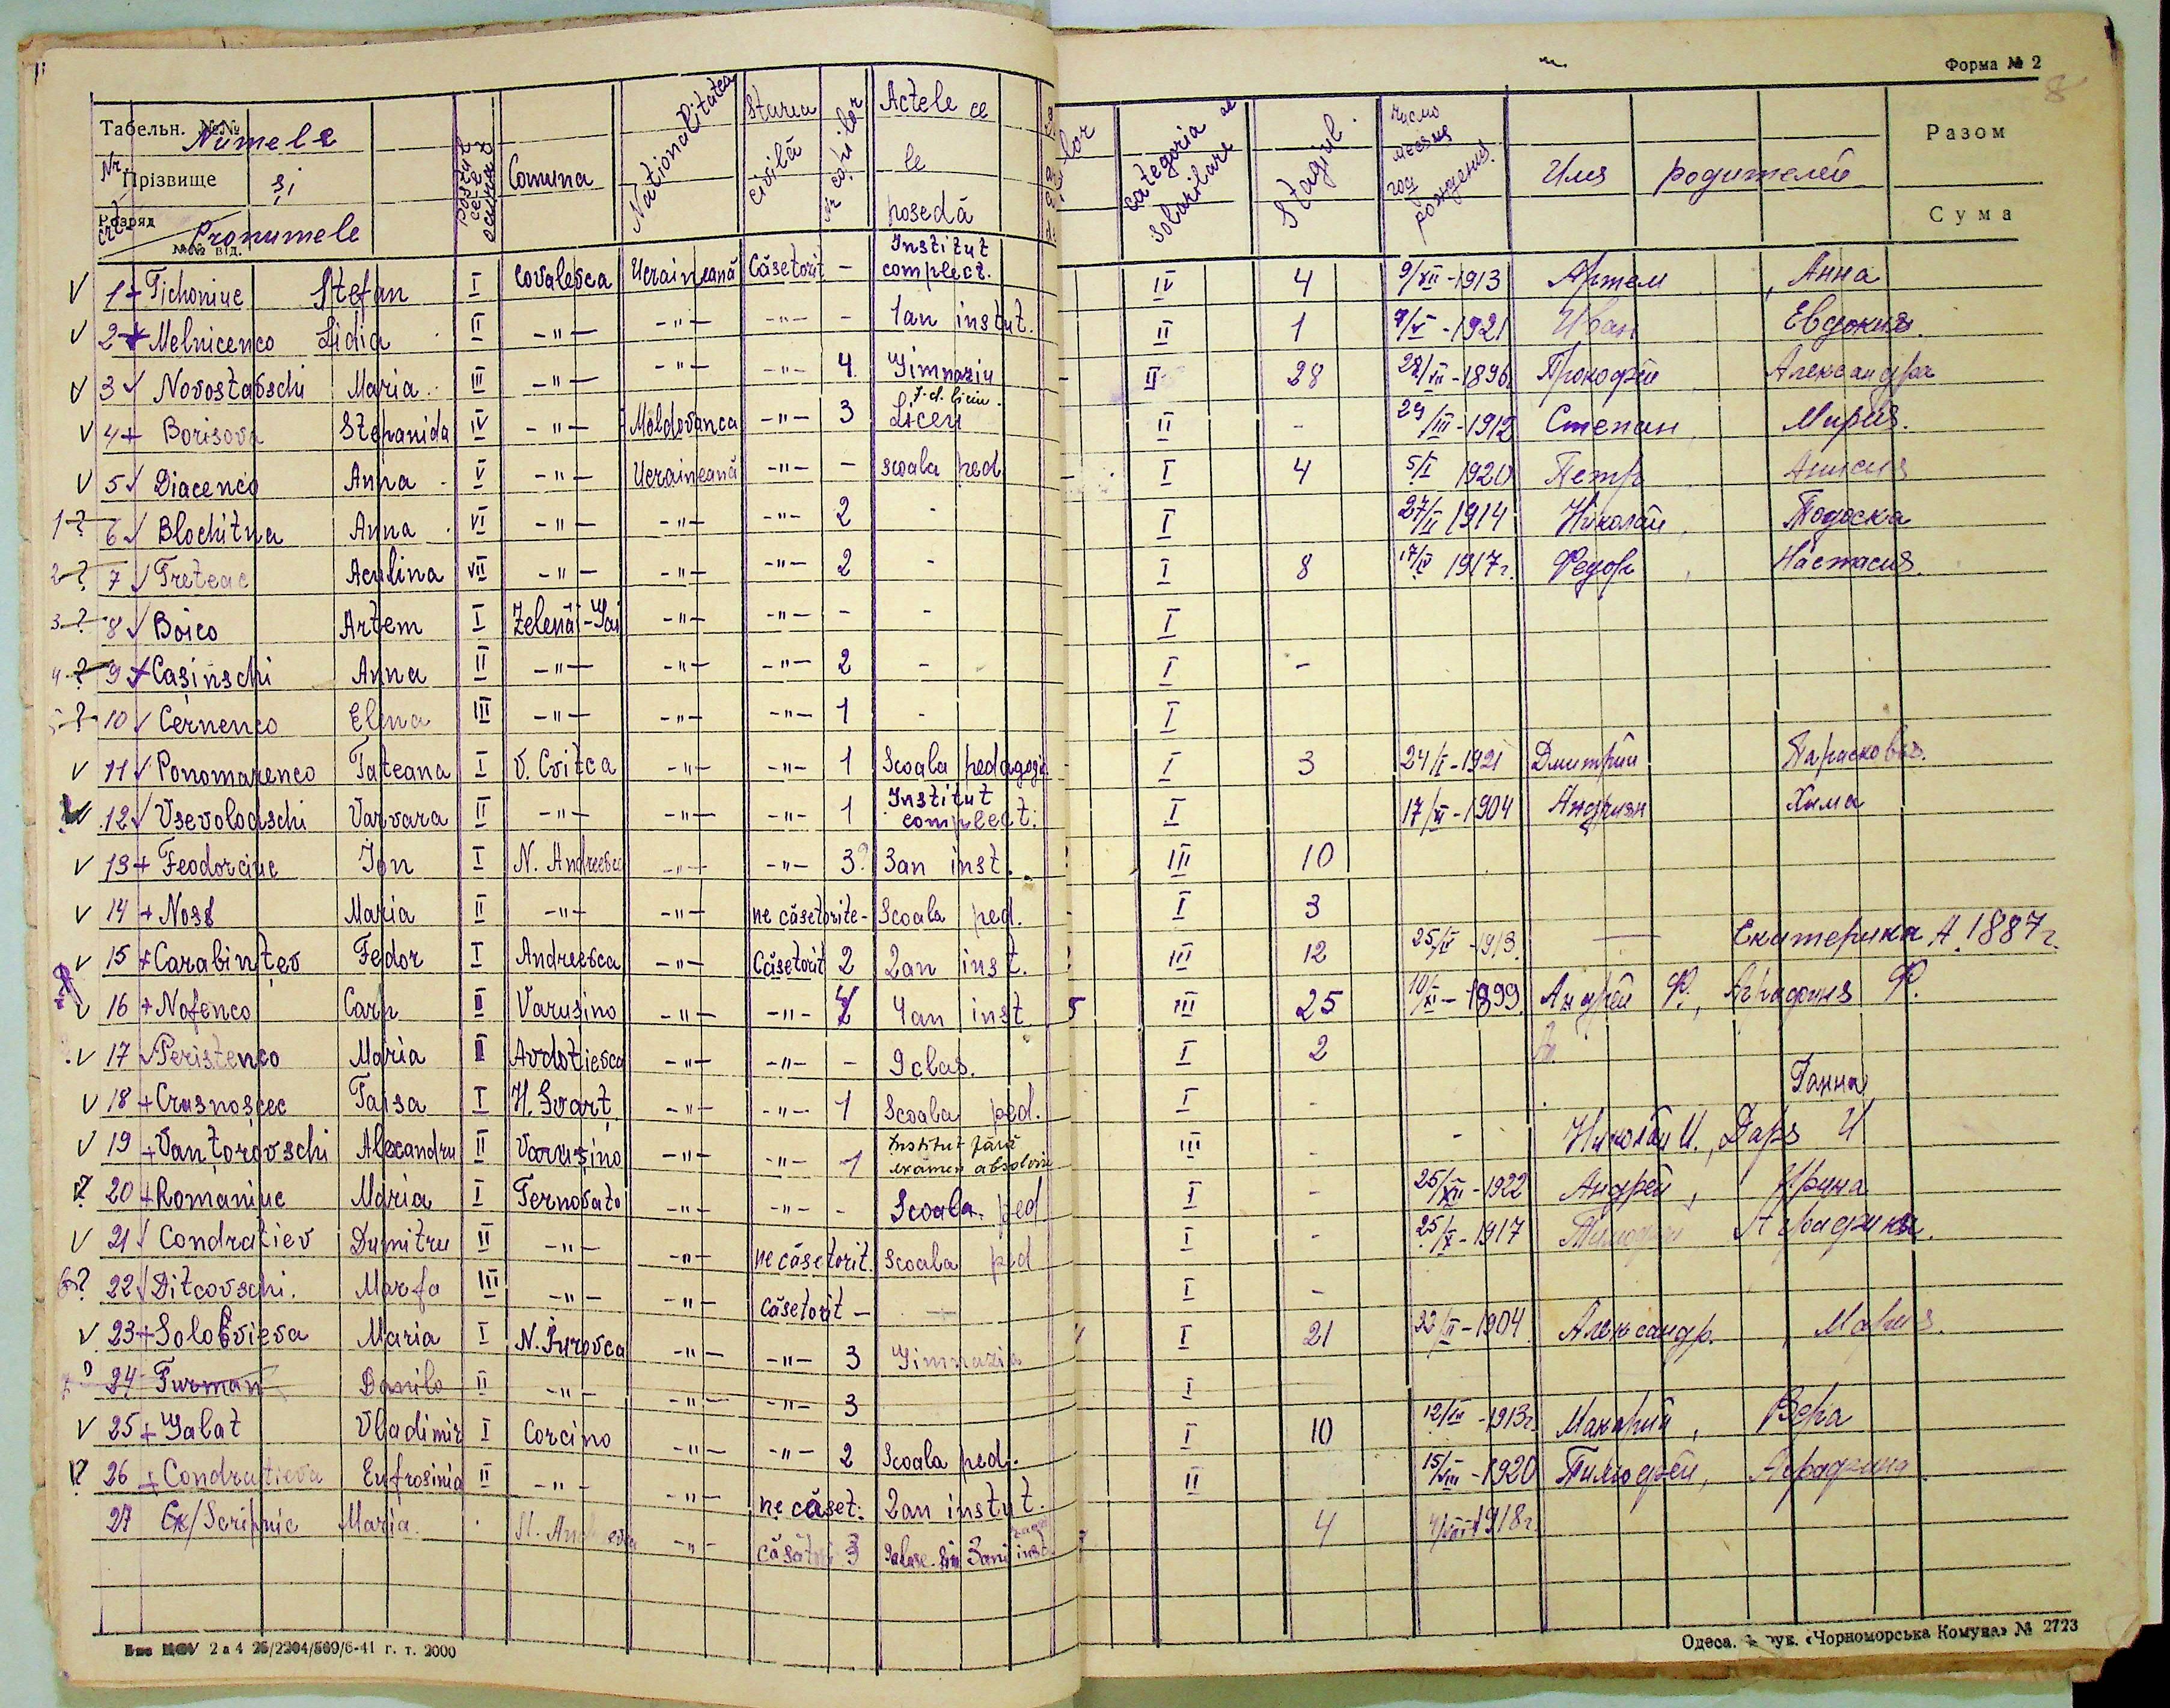 Форма № 2
8
Табельн. №№ Numele
Nr. Прізвище și
crt. Розряд Pronumele
№№ від.
Postul ce-l ocupă
Comuna
Naționalitatea
Starea civilă
Nr copiilor
Actele ce le posedă
categoria de solarilare
Stagiul
число месяц год рождения
Имя родителей
Разом
Сума
V 1 + Tichoniuc Stefan I Covalevca Ucraineană Căsetorit - Institut complect. IV 4 9/XII-1913 Артем, Анна
V 2 + Melnicenco Lidia II -"- -"- -"- - 1an instut. II 1 9/V-1921 Иван Евдокия.
V 3 √ Novostavschi Maria III -"- -"- -"- 4 Gimnaziu - II 28 22/VII-1896 Прокофий Александра
V 4 + Borisova Stepanida IV -"- Moldovanca -"- 3 Liceu II - 29/III-1912 Степан, Мария.
V 5 √ Diacenco Anna V -"- Ucraineană -"- - scoala ped - I 4 5/I 1920 Петр Анисия
1-? 6 √ Blochitna Anna VI -"- -"- -"- 2 - I 27/II 1914 Николай, Тодоска
2-? 7 √ Treteac Aculina VII -"- -"- -"- 2 - I 8 17/IV 1917г. Федор, Настасия.
3-? 8 √ Boico Artem I Zelenâi-Gai -"- -"- - - I
4-? 9 + Casinschi Anna II -"- -"- -"- 2 - I -
5-? 10 √ Cernenco Elena III -"- -"- -"- 1 - I
V 11 √ Ponomarenco Tateana I V. Cvitca -"- -"- 1 Scoala pedagogic I 3 24/I-1921 Дмитрий Парасковья.
V 12 √ Vsevolodschi Varvara II -"- -"- -"- 1 Institut complect. I 17/XI-1904 Андриян Хима
V 13 + Feodorciuc Ion I N. Andreevca -"- -"- 3? 3an inst. III 10
V 14 + Noss Maria II -"- -"- ne căsetorite - Scoala ped. - I 3
V 15 + Carabințev Fedor I Andreevca -"- Căsetorit 2 2an inst. III 12 25/IV-1913. — Екатерина А. 1887г.
V 16 + Nofenco Carp II Varusino -"- -"- 4an inst. 5 III 25 10/XI-1899. Андрей Ф., Аграфина Ф.
V 17 √ Peristenco Maria II Avdotievca -"- -"- - 9clas. I 2
V 18 + Crasnoscec Taisa I H. Svarț -"- -"- 1 Scoala ped. I - Ганна
V 19 + Vanțorovschi Alexandru II Varusino -"- -"- 1 Institut fără examen absolvire III - - Николай И., Даря И
? 20 + Romaniuc Maria I Ternovato -"- -"- - Scoala ped I - 25/XII-1922 Андрей, Ирина
V 21 √ Condratiev Dumitru II -"- -"- ne căsetorit. Scoala ped I - 25/X-1917 Тимофей Аграфина.
6? 22 √ Ditcovschi. Marfa III -"- -"- Căsetorit - - I -
V 23 + Solovieva Maria I N. Iurovca -"- -"- 3 Gimnazia I 21 22/II-1904 Александр., Мария.
? 24 Furman Danilo II -"- -"- -"- 3 I
V 25 + Galat Vladimir I Corcino -"- -"- 2 Scoala ped. I 10 12/III-1913г. Макарий, Вера
? 26 + Condratieva Eufrosinia II -"- -"- ne căset. 2an instut. II 15/VIII-1920 Тимофей, Аграфина
27 Scripnic Maria -"- 3 4 1918г.
2 a 4 25/2204/509/6-41 г. т. 2000
Одеса. «Чорноморська Комуна» № 2723